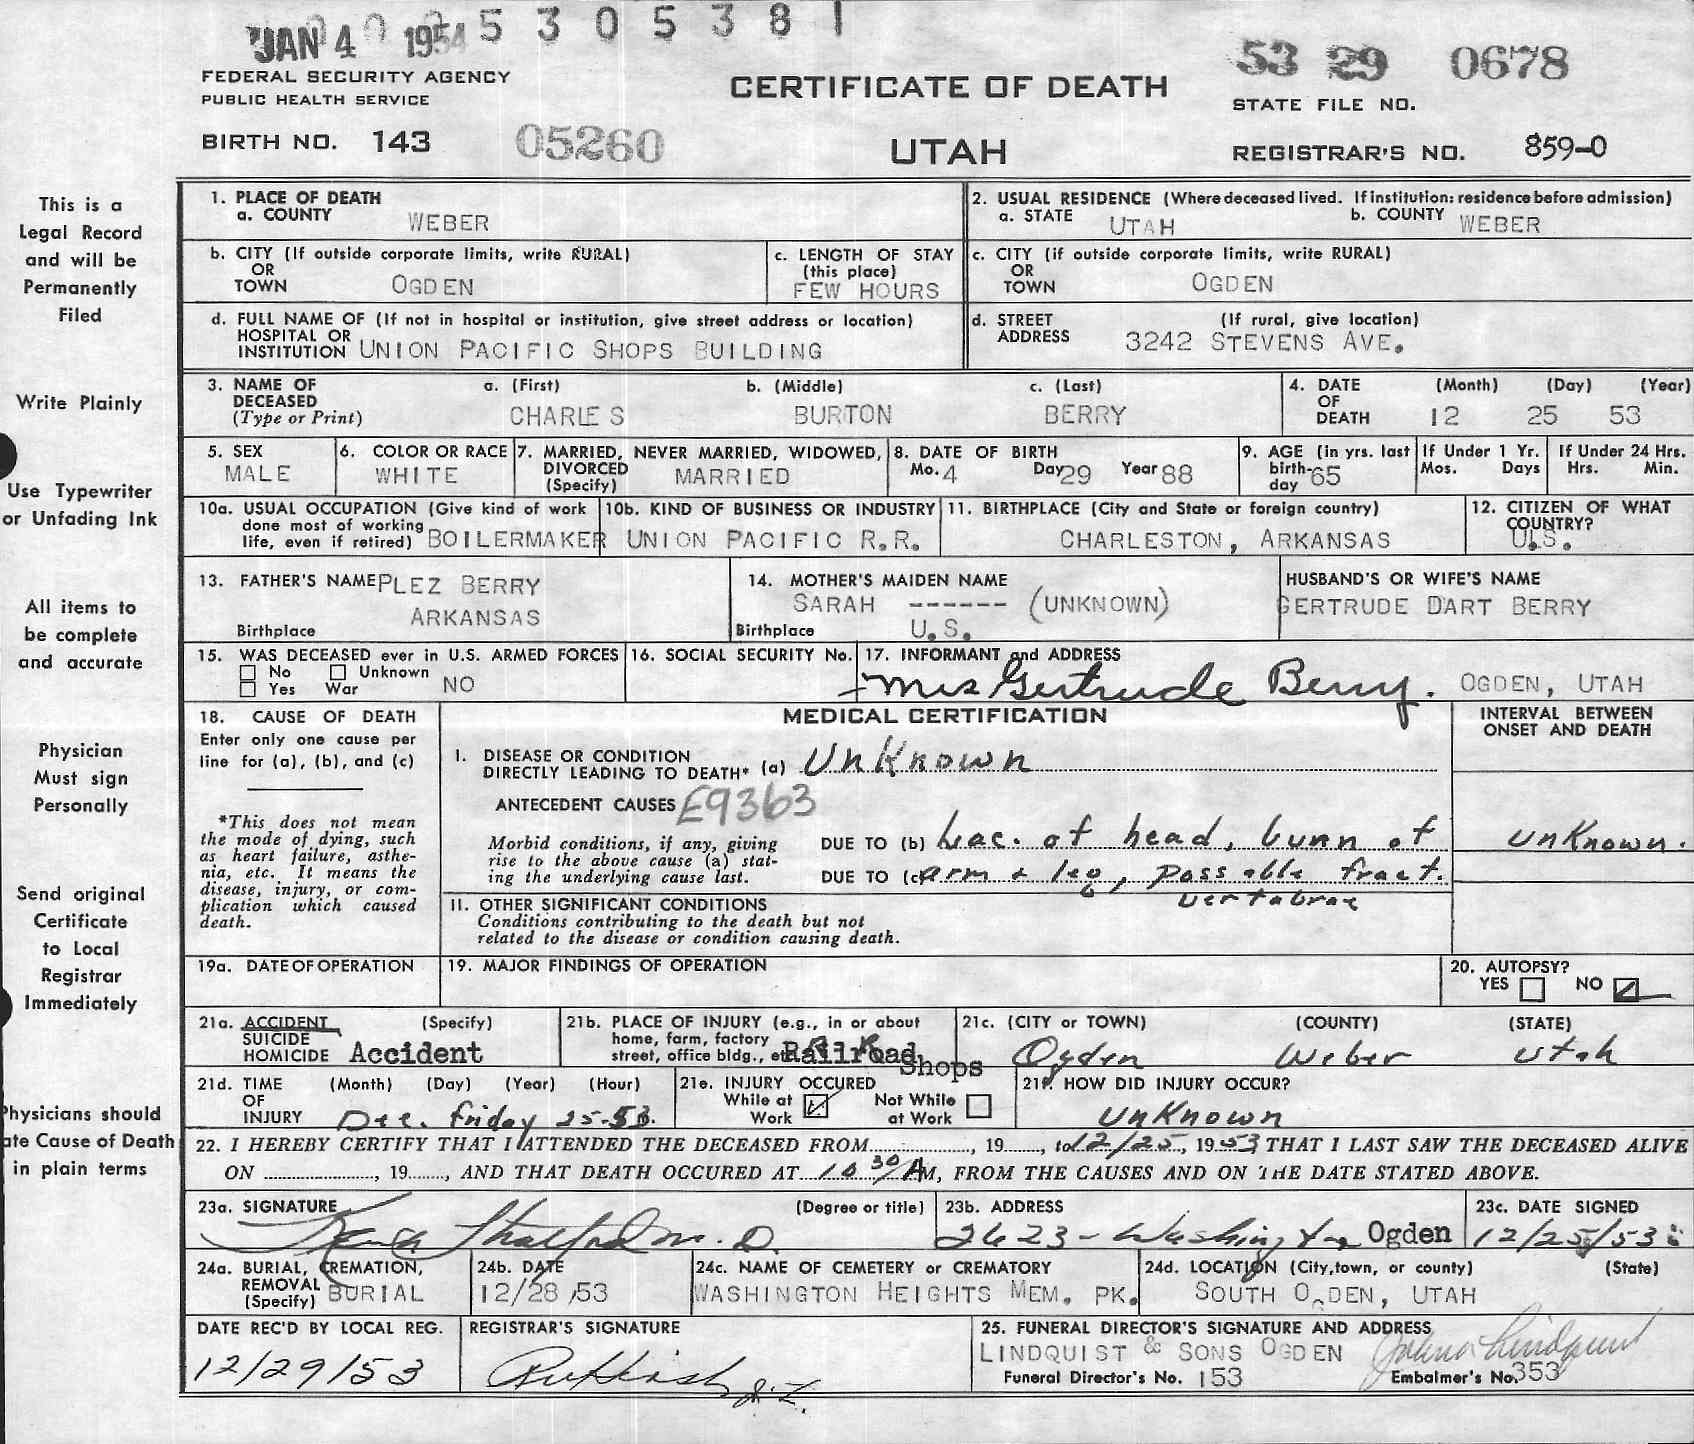 JAN 4 1954 5 3 0 5 3 8 1
53 29 0678
FEDERAL SECURITY AGENCY
PUBLIC HEALTH SERVICE
CERTIFICATE OF DEATH
STATE FILE NO.
BIRTH NO. 143 05260
UTAH
REGISTRAR'S NO. 859-0
This is a
Legal Record
and will be
Permanently
Filed
Write Plainly
Use Typewriter
or Unfading Ink
All items to
be complete
and accurate
Physician
Must sign
Personally
Send original
Certificate
to Local
Registrar
Immediately
Physicians should
ate Cause of Death
in plain terms
1. PLACE OF DEATH
a. COUNTY WEBER
2. USUAL RESIDENCE (Where deceased lived. If institution: residence before admission)
a. STATE UTAH b. COUNTY WEBER
b. CITY (If outside corporate limits, write RURAL)
OR
TOWN OGDEN
c. LENGTH OF STAY
(this place)
FEW HOURS
c. CITY (if outside corporate limits, write RURAL)
OR
TOWN OGDEN
d. FULL NAME OF (If not in hospital or institution, give street address or location)
HOSPITAL OR
INSTITUTION UNION PACIFIC SHOPS BUILDING
d. STREET (If rural, give location)
ADDRESS 3242 STEVENS AVE.
3. NAME OF DECEASED (Type or Print)
a. (First) b. (Middle) c. (Last)
CHARLES BURTON BERRY
4. DATE OF DEATH (Month) (Day) (Year)
12 25 53
5. SEX
MALE
6. COLOR OR RACE
WHITE
7. MARRIED, NEVER MARRIED, WIDOWED,
DIVORCED
(Specify) MARRIED
8. DATE OF BIRTH
Mo. 4 Day 29 Year 88
9. AGE (in yrs. last
birth-
day 65
If Under 1 Yr.
Mos. Days
If Under 24 Hrs.
Hrs. Min.
10a. USUAL OCCUPATION (Give kind of work
done most of working
life, even if retired) BOILERMAKER
10b. KIND OF BUSINESS OR INDUSTRY
UNION PACIFIC R.R.
11. BIRTHPLACE (City and State or foreign country)
CHARLESTON, ARKANSAS
12. CITIZEN OF WHAT
COUNTRY?
U.S.
13. FATHER'S NAME PLEZ BERRY
ARKANSAS
Birthplace
14. MOTHER'S MAIDEN NAME
SARAH ------ (UNKNOWN)
Birthplace U.S.
HUSBAND'S OR WIFE'S NAME
GERTRUDE DART BERRY
15. WAS DECEASED ever in U.S. ARMED FORCES
No Unknown
Yes War NO
16. SOCIAL SECURITY No.
17. INFORMANT and ADDRESS
Mrs Gertrude Berry. OGDEN, UTAH
18. CAUSE OF DEATH
Enter only one cause per
line for (a), (b), and (c)
*This does not mean
the mode of dying, such
as heart failure, asthe-
nia, etc. It means the
disease, injury, or com-
plication which caused
death.
MEDICAL CERTIFICATION
INTERVAL BETWEEN
ONSET AND DEATH
I. DISEASE OR CONDITION
DIRECTLY LEADING TO DEATH* (a) Unknown
ANTECEDENT CAUSES E9363
Morbid conditions, if any, giving
rise to the above cause (a) stat-
ing the underlying cause last.
DUE TO (b) Lac. of head, burn of unknown.
DUE TO (c) arm & leg, possable fract.
vertabrae
II. OTHER SIGNIFICANT CONDITIONS
Conditions contributing to the death but not
related to the disease or condition causing death.
19a. DATE OF OPERATION
19. MAJOR FINDINGS OF OPERATION
20. AUTOPSY?
YES NO
21a. ACCIDENT (Specify)
SUICIDE
HOMICIDE Accident
21b. PLACE OF INJURY (e.g., in or about
home, farm, factory
street, office bldg., etc. Railroad
Shops
21c. (CITY or TOWN) (COUNTY) (STATE)
Ogden Weber Utah
21d. TIME (Month) (Day) (Year) (Hour)
OF
INJURY Dec. Friday 25-53.
21e. INJURY OCCURED
While at Work Not While at Work
21f. HOW DID INJURY OCCUR?
Unknown
22. I HEREBY CERTIFY THAT I ATTENDED THE DECEASED FROM ............, 19......, to 12/25, 1953, THAT I LAST SAW THE DECEASED ALIVE
ON ............, 19......, AND THAT DEATH OCCURED AT 10 30/AM, FROM THE CAUSES AND ON THE DATE STATED ABOVE.
23a. SIGNATURE (Degree or title)
M.D.
23b. ADDRESS
2623 - Washington Ogden
23c. DATE SIGNED
12/25/53
24a. BURIAL, CREMATION,
REMOVAL
(Specify) BURIAL
24b. DATE
12/28/53
24c. NAME OF CEMETERY or CREMATORY
WASHINGTON HEIGHTS MEM. PK.
24d. LOCATION (City, town, or county) (State)
SOUTH OGDEN, UTAH
DATE REC'D BY LOCAL REG.
12/29/53
REGISTRAR'S SIGNATURE
25. FUNERAL DIRECTOR'S SIGNATURE AND ADDRESS
LINDQUIST & SONS OGDEN
Funeral Director's No. 153 Embalmer's No. 353